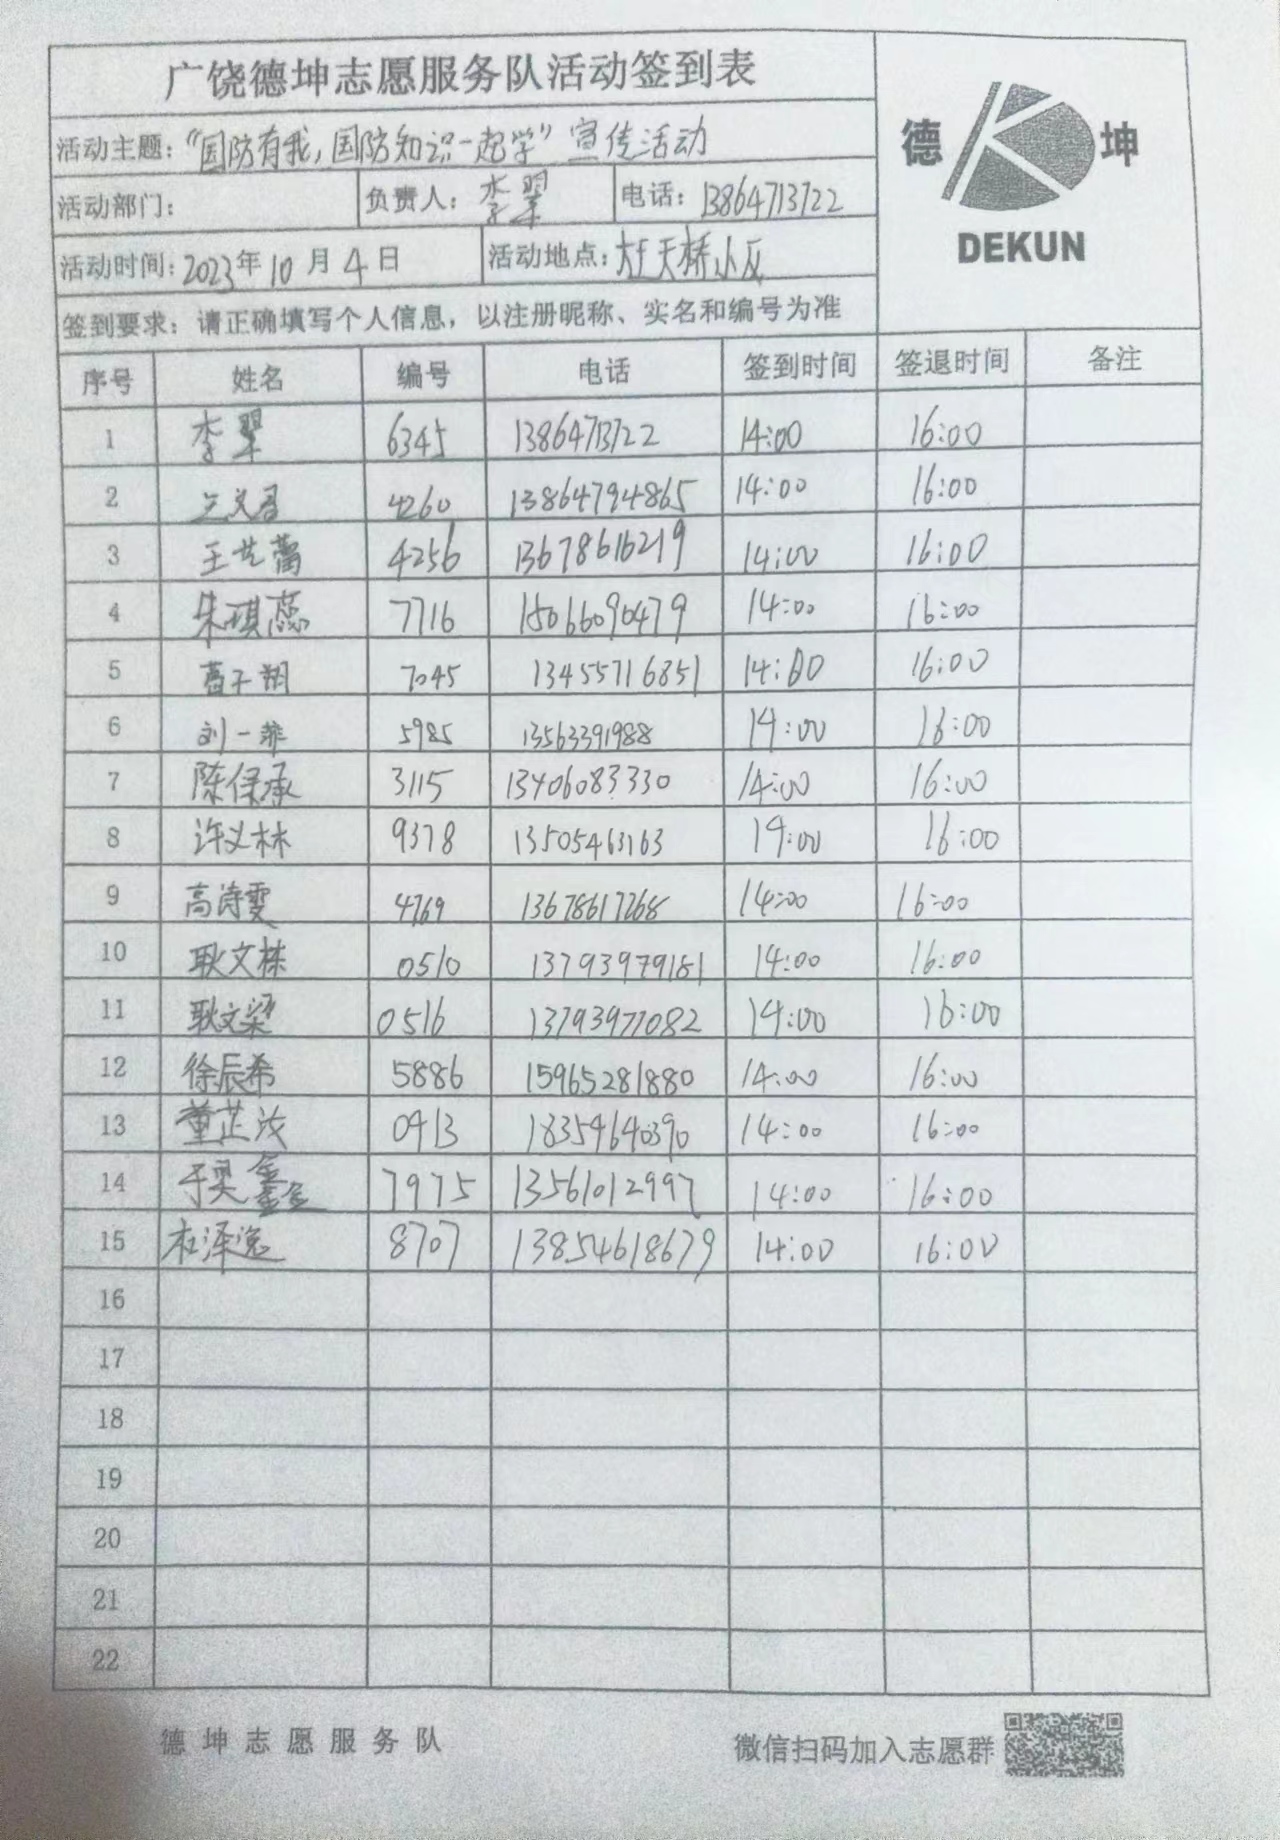 广饶德坤志愿服务队活动签到表
德 坤
DEKUN
活动主题：“国防有我，国防知识一起学”宣传活动
活动部门： 负责人：李翠 电话：13864713722
活动时间：2023年10月4日 活动地点：天桥小区
签到要求：请正确填写个人信息，以注册昵称、实名和编号为准
序号 姓名 编号 电话 签到时间 签退时间 备注
1 李翠 6345 13864713722 14:00 16:00
2 王文君 4260 13864794865 14:00 16:00
3 王艺蕾 4256 13678616219 14:00 16:00
4 朱琪蕊 7716 15066090479 14:00 16:00
5 葛子翔 7045 13455716851 14:00 16:00
6 刘一菲 5985 13563391988 14:00 16:00
7 陈保承 3115 13406083330 14:00 16:00
8 许义林 9378 13505463163 14:00 16:00
9 高诗雯 4769 13678617268 14:00 16:00
10 耿文栋 0510 13793979181 14:00 16:00
11 耿文梁 0516 13793977082 14:00 16:00
12 徐辰希 5886 15965281880 14:00 16:00
13 董芷汝 0413 18354640390 14:00 16:00
14 于奕鑫 7975 13561012997 14:00 16:00
15 杜泽逸 8707 13854618679 14:00 16:00
16
17
18
19
20
21
22
德坤志愿服务队 微信扫码加入志愿群